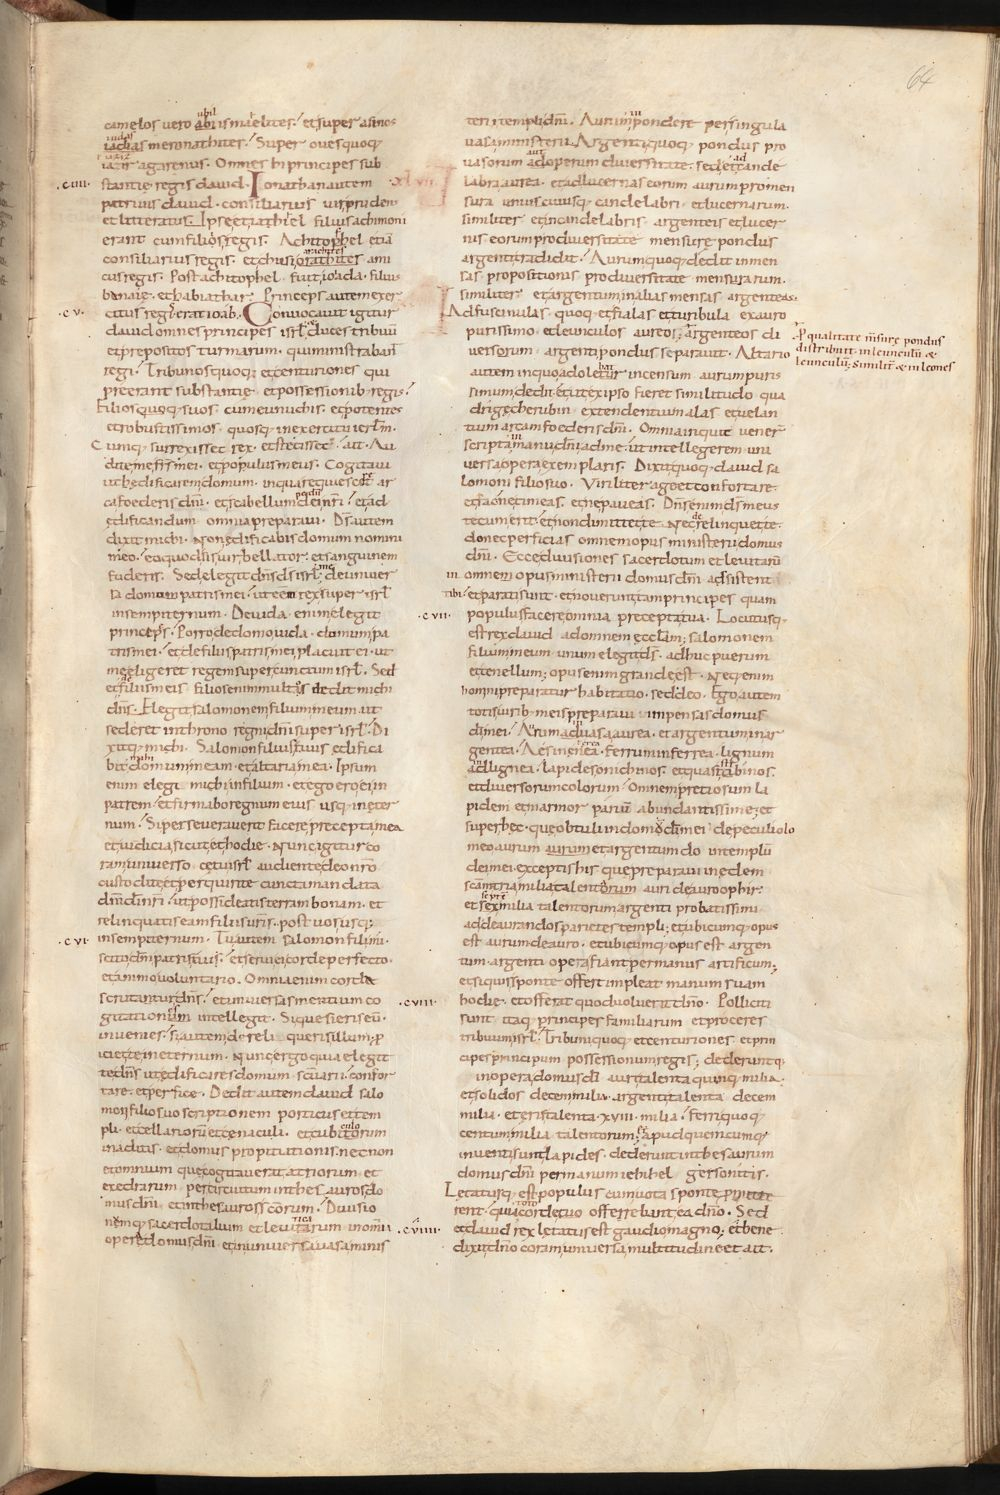 64
camelos vero abi ismaelites. et super asinos
iadias meronathites. Super oves quoq;
agarenus. Omnes hi principes sub
.ciiii. stantie regis david. Ionathan autem
patruus david. consiliarius vir prudens
et litteratus. Ipse et iahiel filius achimoni
erant cum filios regis. Achitophel etiā
consiliarius regis. et chusi orathites ami
cus regis. Post achitophel fuit ioiada. filius
banaie. et habiathar. Princeps autem exer
.cv. citus regis erat ioab. Convocavit igitur
david omnes principes isrl̄. duces tribuū
et prepositos turmarum. qui ministrabant
regi. Tribunos quoq; et centuriones qui
preerant substantie. et possessionib; regis.
Filiosq; suos. cum eunuchis. et potentes
et robustissimos quosq; in exercitu ierlm̄.
Cumq; surrexisset rex. et stetisset. ait. Au
dite me fr̄s mei. et populus meus. Cogitavi
ut hedificarem domum. in qua requiesceret ar
ca foederis dn̄i. et scabellum dei nr̄i. et ad
edificandum omnia preparavi. Ds̄ autem
dixit michi. Non edificabis domum nomini
meo. eo quod sis vir bellator. et sanguinem
fuderis. Sed elegit dn̄s ds̄ isrl̄. me de univer
sa domum patris mei. ut eem rex super isrl̄
in sempiternum. De iuda enim elegit
principes. Porro de domo iuda. domum pa
tris mei. et de filiis patris mei placuit ei. ut
me eligeret regem super cunctum isrl̄. Sed
et filiis meis filios enim multos dedit michi
dn̄s. Elegit salomonem filium meum ut
sederet in throno regni dn̄i super isrl̄. Di
xitq; michi. Salomon filius tuus edifica
bit domum meam. et altaria mea. Ipsum
enim elegi michi in filium. et ego ero ei in
patrem. et firmabo regnum eius usq; in eter
num. Si perseveraverit facere precepta mea
et iudicia sicut et hodie. Nunc igitur co
ram universo cetu isrl̄ audiente deo nr̄o
custodite et perquirite cuncta mandata
dn̄i dei nr̄i. ut possideatis terram bonam. et
relinquatis eam filiis vr̄is. post vos usq;
.cvi. in sempiternum. Tu autem salomon fili mi.
scito dm̄ patris tui. et servi ei corde perfecto.
et animo voluntario. Omnia enim corda
scrutantur dn̄s. et universas mentium co
gitationum intellegit. Si quesieris eū.
invenies. si autem dereliqueris illum. p
iciet te in eternum. Nunc ergo quia elegit
te dn̄s ut edificares domum scūarii. confor
tare. et perfice. Dedit autem david salo
moni filio suo scriptionem porticus et tem
pli. et cellariorū et cenaculi. et cubitorum
in aditis. et domus propitiationis. nec non
et omnium que cogitaverat. atriorum et
exedrarum per circuitum in thesauros do
mus dn̄i. et in thesauros scōrum. Divisio
nemq; sacerdotalium et levitarum in omni
opere domus dn̄i et in universa vasa minis
terii templi dn̄i. Aurum pondere per singula
vasa ministerii. Argentiquoq; pondus pro
vasorum ad operum diversitate. sed et cande
labra aurea. et ad lucernas eorum aurum pro men
sura uniuscuiusq; candelabri. et lucernarum.
similiter et in candelabris argenteis et lucer
nis eorum pro diversitate mensure pondus
argenti tradidit. Aurum quoq; dedit in men
sas propositionis pro diversitate mensurarum.
similiter et argentum in alias mensas argenteas.
Ad fuscinulas quoq; et fialas et turibula ex auro
purissimo. et leunculos aureos. argenteos di
versorum argenti pondus separavit. Altario
p qualitate m̄sure pondus
distribuit. in leunculū &
leunculū. Similit̄ & in leones
autem in quo adoletur incensum aurum puris
simum dedit. et ut ex ipso fieret similitudo qua
drige cherubin. extendentium alas et velan
tium arcam foederis dn̄i. Omnia inquit venert̄
scripta manu dn̄i ad me. ut intellegerem uni
versa opera exemplaris. Dixit quoq; david sa
lomoni filio suo. Viriliter age et confortare.
et fac. ne timeas. et ne paveas. Dn̄s enim ds̄ meus
tecum erit. et non dimittet te. nec relinquet te.
donec perficias omnem opus ministerii domus
dn̄i. Ecce divisiones sacerdotum et levitarū
in omnem opus ministerii domus dn̄i adsistent
tibi et parati sunt. et noverunt tam principes quam
.cvii. populus facere omnia precepta tua. Locutusq;
est rex david ad omnem eccl̄am. salomonem
filium meum unum elegit ds̄. adhuc puerum
et tenellum. opus enim grande est. Neq; enim
homini preparatur habitatio. sed deo. Ego autem
totis virib; meis preparavi impensas domus
di mei. Aurum ad vasa aurea. et argentum in ar
gentea. Aes in enea. ferrum in ferrea. lignum
ad lignea. lapides onichinos. et quasi stibinos.
et diversorum colorum. Omnem pretiosum la
pidem et marmor pariū abundantissime. et
super hec que obtuli in domo di mei de peculiolo
meo aurum aurum et argentum do in templū
dei mei. exceptis his que preparavi in edem
scām. tria milia talentorum auri de auro ophir.
et sex milia talentorum argenti probatissimi
ad deaurandos parietes templi. et ubicumq; opus
est aurum de auro. et ubicumq; opus est argen
tum. argenti opera fiant per manus artificum.
et si quis sponte offert impleat manum suam
.cviii. hodie. et offerat quod voluerit dn̄o. Polliciti
sunt itaq; principes familiarum et proceres
tribuum isrl̄. Tribuni quoq; et centuriones et prin
cipes principum possessionum regis. dederuntq;
in opera domus dī auri talenta quinq; milia.
et solidos decem milia. argenti talenta decem
milia. et eris talenta .xviii. milia. ferri quoq;
centum milia talentorum. apud quemcumq;
inventi sunt lapides. dederunt in thesaurum
domus dn̄i per manum iehihel gersonitis.
Letatusq; est populus cum vota sponte
rent. quia corde tuo offerebunt ea dn̄o. Sed
.cviiii. et david rex letatus est gaudio magno. et bene
dixit dn̄o coram universa multitudine et ait.